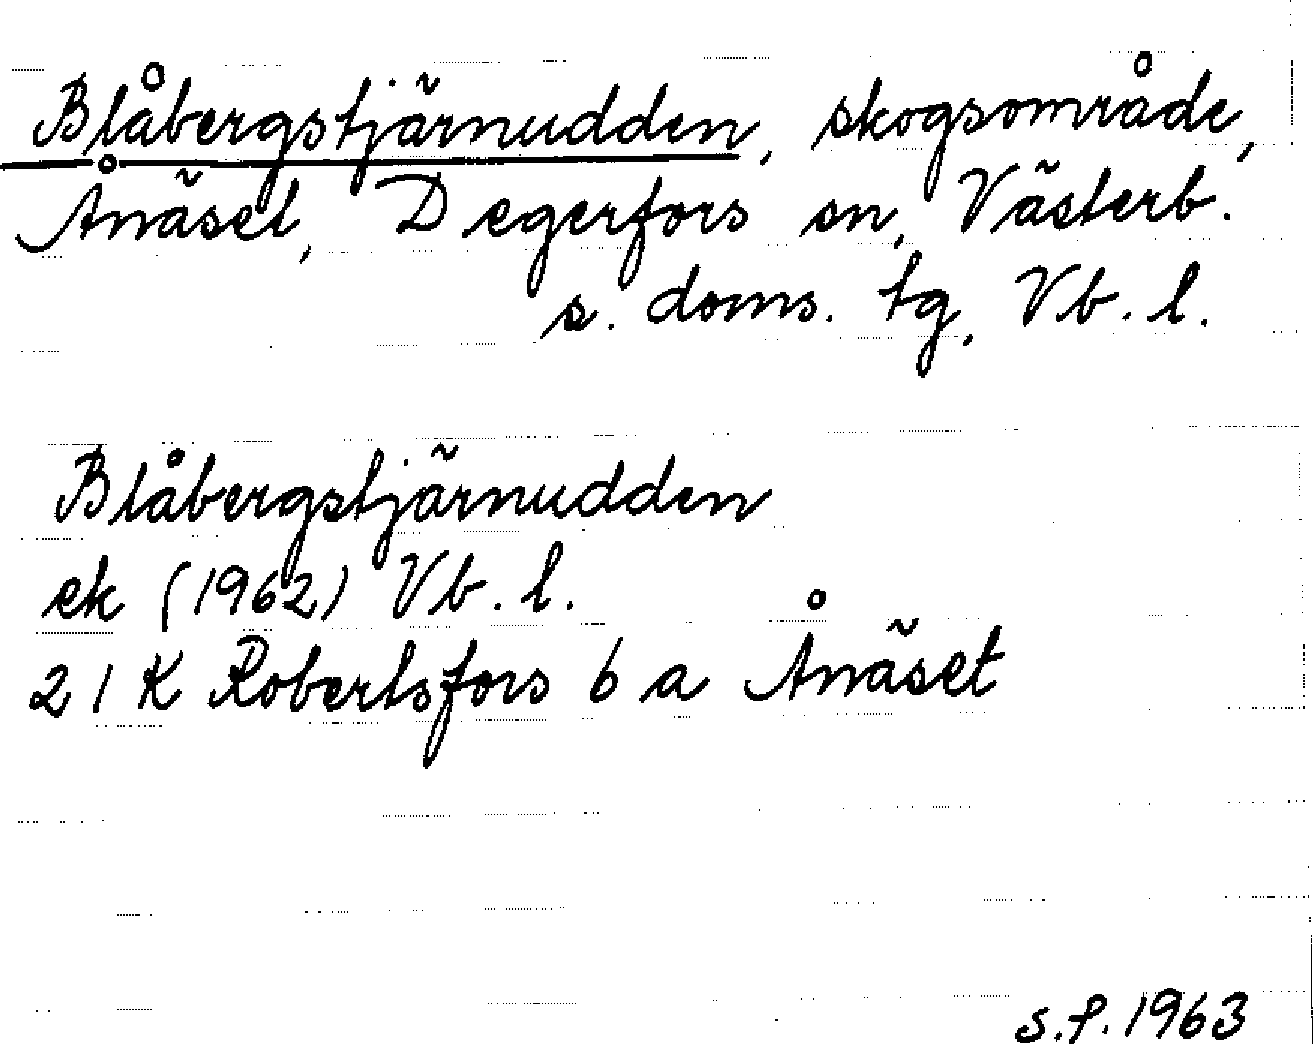 Blåbergstjärnudden, skogsområde,
Ånäset, Degerfors sn, Västerb.
s. doms. tg, Vb. l.
Blåbergstjärnudden
ek (1962) Vb. l.
21 K Robertsfors 6 a Ånäset
S.P. 1963